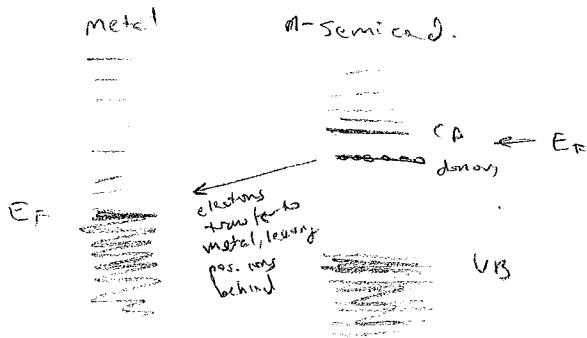 metal
n-semicond.
CB
E_F
donors
E_F
electrons
transfer to
metal, leaving
pos. ions
behind
VB